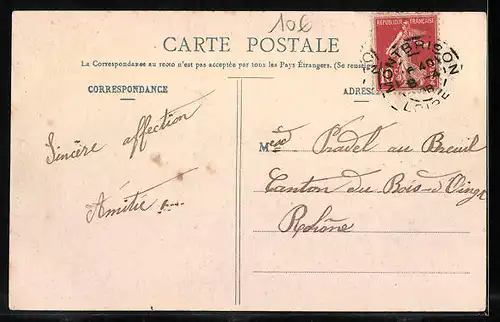 106
CARTE POSTALE
La Correspondance au recto n'est pas acceptée par tous les Pays Étrangers. (Se renseigner
CORRESPONDANCE
ADRESSE
REPUBLIQUE FRANÇAISE
MONTBRISON
LOIRE
Sincère affection
Amitié
M Pradel au Breuil
Canton du Bois-d'Oingt
Rhône